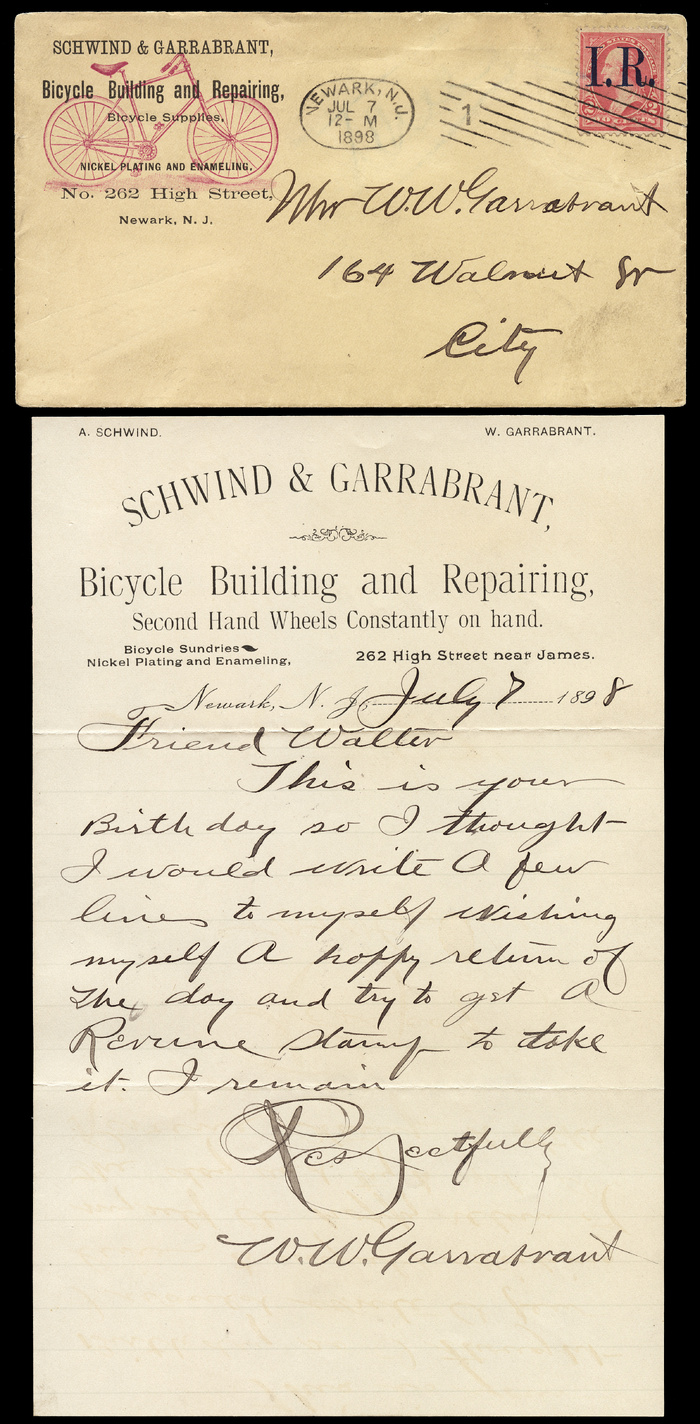 SCHWIND & GARRABRANT,
Bicycle Building and Repairing,
Bicycle Supplies,
NICKEL PLATING AND ENAMELING.
No. 262 High Street,
Newark, N. J.
NEWARK, N.J.
JUL 7
12- M
1898
1
I.R.
Mr W.W. Garrabrant
164 Walnut St
City
A. SCHWIND.
W. GARRABRANT.
SCHWIND & GARRABRANT,
Bicycle Building and Repairing,
Second Hand Wheels Constantly on hand.
Bicycle Sundries
Nickel Plating and Enameling,
262 High Street near James.
Newark, N. J. July 7 1898
Friend Walter
This is your
Birth day so I thought
I would write A few
lines to myself wishing
myself A happy return of
the day and try to get A
Revune stamp to take
it. I remain
Respectfully
W.W. Garrabrant